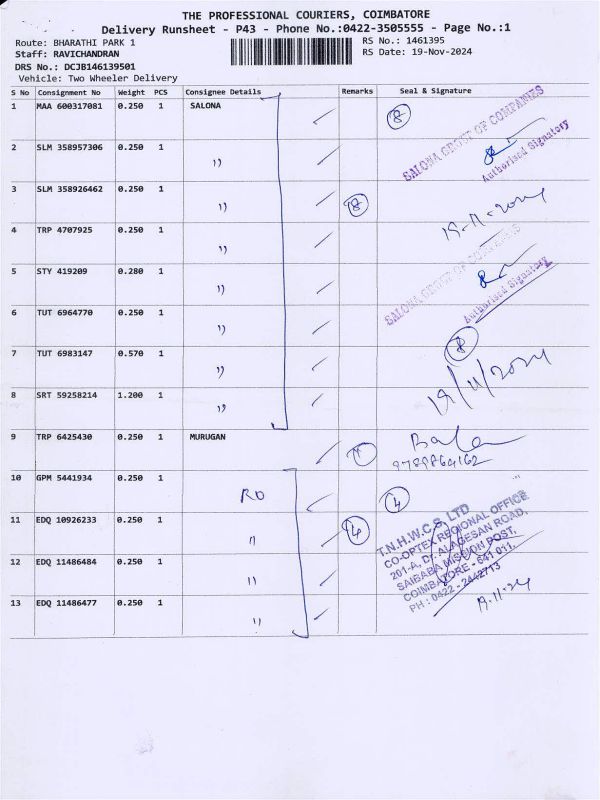 THE PROFESSIONAL COURIERS, COIMBATORE
Delivery Runsheet - P43 - Phone No.:0422-3505555 - Page No.:1
Route: BHARATHI PARK 1
Staff: RAVICHANDRAN
DRS No.: DCJB146139501
Vehicle: Two Wheeler Delivery
RS No.: 1461395
RS Date: 19-Nov-2024
S No Consignment No Weight PCS Consignee Details Remarks Seal & Signature
1 MAA 600317081 0.250 1 SALONA 8
SALONA GROUP OF COMPANIES
Authorised Signatory
2 SLM 358957306 0.250 1 "
3 SLM 358926462 0.250 1 " 8
19-11-2024
4 TRP 4707925 0.250 1 "
SALONA GROUP OF COMPANIES
Authorised Signatory
5 STY 419209 0.280 1 "
6 TUT 6964770 0.250 1 "
8
7 TUT 6983147 0.570 1 "
19/11/2024
8 SRT 59258214 1.200 1 "
9 TRP 6425430 0.250 1 MURUGAN 1
9789864162
10 GPM 5441934 0.250 1 RO 4
11 EDQ 10926233 0.250 1 " 4
T.N.H.W.C.S. LTD
CO-OPTEX REGIONAL OFFICE
201-A, Dr. ALAGESAN ROAD,
SAIBABA MISSION POST,
COIMBATORE - 641 011.
PH : 0422 - 2442713
12 EDQ 11486484 0.250 1 "
19.11.24
13 EDQ 11486477 0.250 1 "